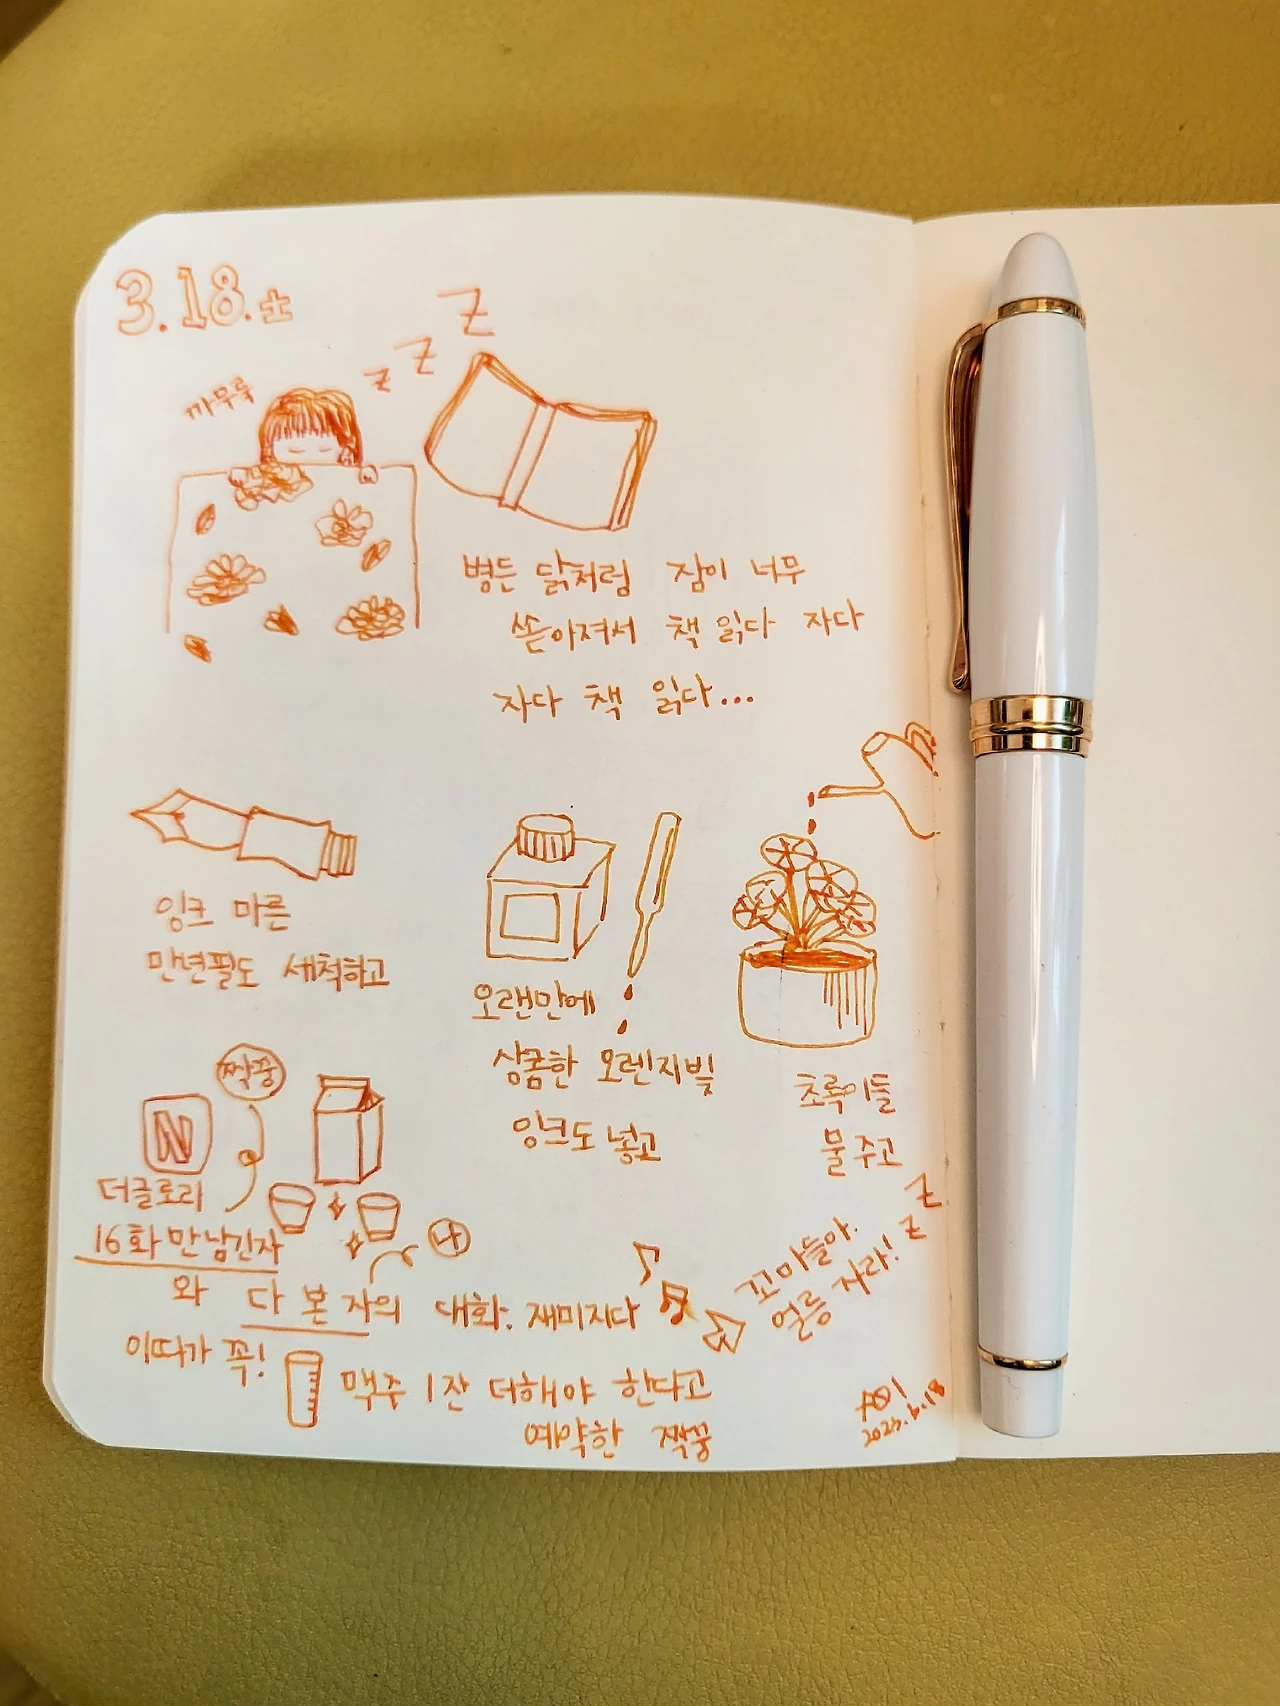 3.18.土
까무룩
z z Z
병든 닭처럼 잠이 너무
쏟아져서 책 읽다 자다
자다 책 읽다...
잉크 마른
만년필도 세척하고
오랜만에
상콤한 오렌지빛
잉크도 넣고
초록이들
물 주고
짝꿍
N
더글로리
16화 만 남긴자
와 다 본 자의 대화. 재미지다
나
이따가 꼭!
맥주 1잔 더해야 한다고
예약한 짝꿍
꼬마들아.
얼릉 자라!
z z